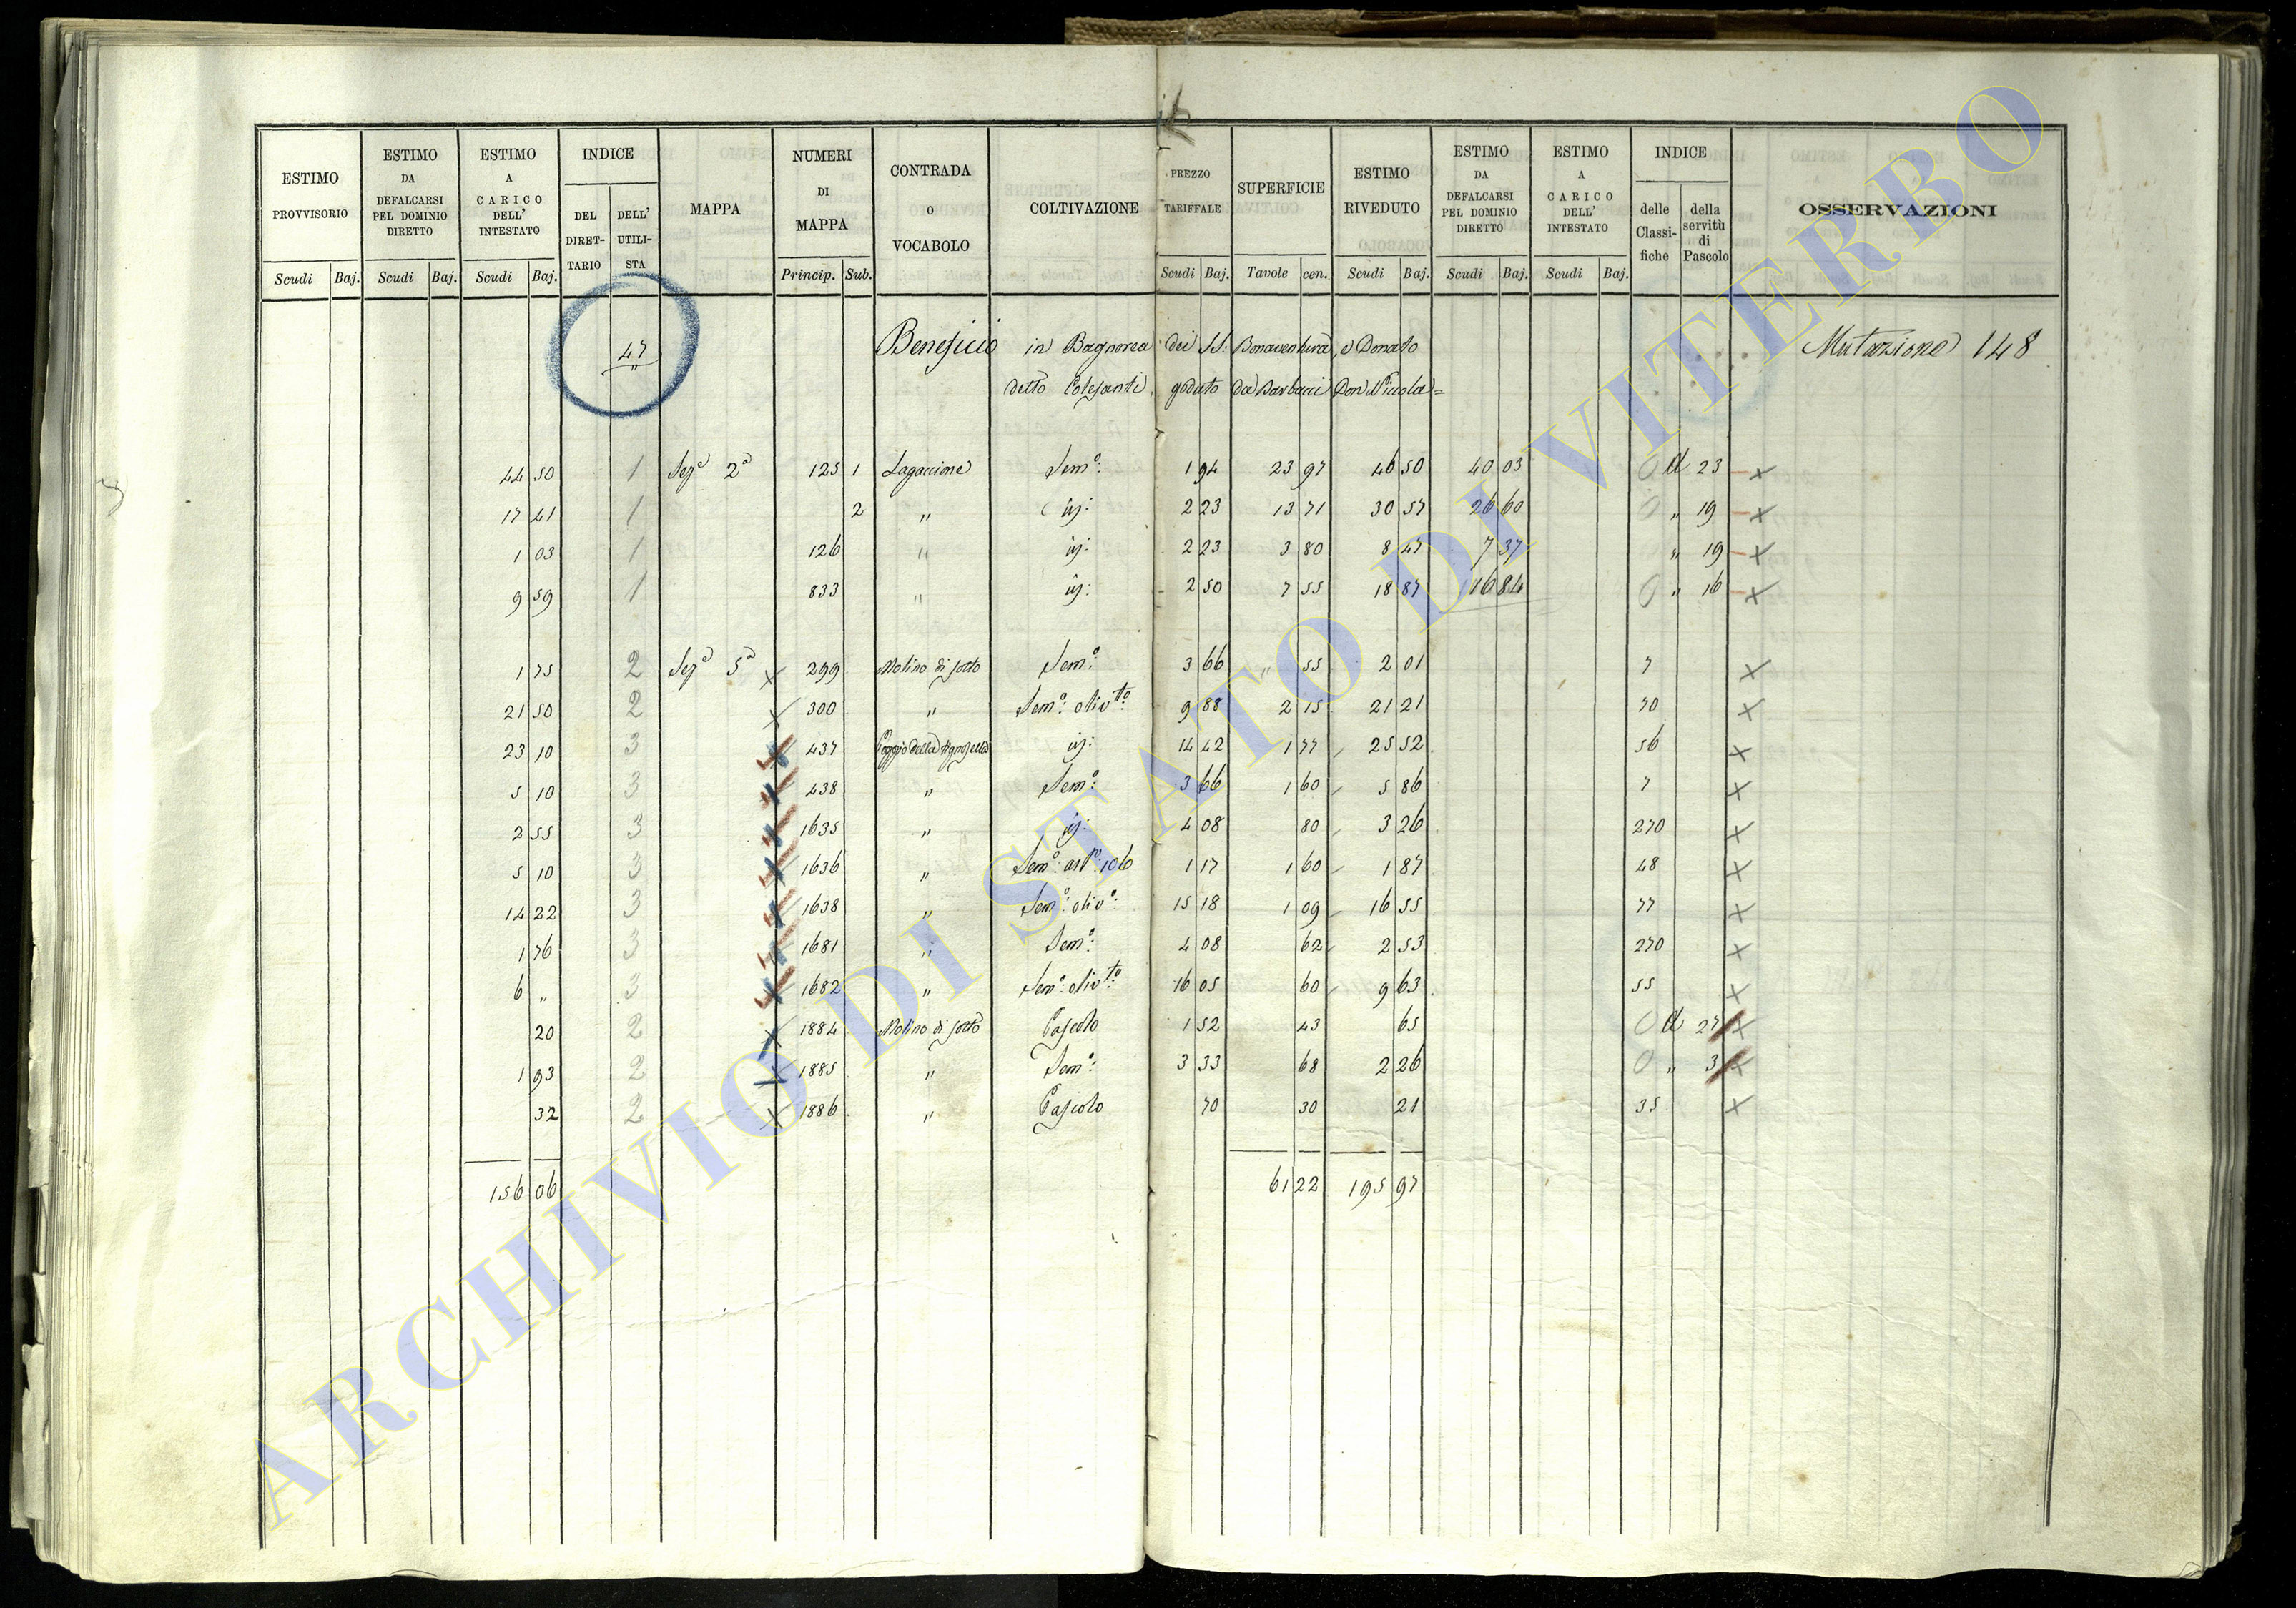 ESTIMO PROVVISORIO ESTIMO DA DEFALCARSI PEL DOMINIO DIRETTO ESTIMO A CARICO DELL' INTESTATO INDICE DEL DIRETTARIO DELL' UTILISTA MAPPA NUMERI DI MAPPA CONTRADA O VOCABOLO COLTIVAZIONE PREZZO TARIFFALE SUPERFICIE ESTIMO RIVEDUTO ESTIMO DA DEFALCARSI PEL DOMINIO DIRETTO ESTIMO A CARICO DELL' INTESTATO INDICE delle Classifiche della servitù di Pascolo OSSERVAZIONI
Scudi Baj. Scudi Baj. Scudi Baj. Princip. Sub. Scudi Baj. Tavole cen. Scudi Baj. Scudi Baj. Scudi Baj.
47 Beneficio in Bagnorea dei SS: Bonaventura, e Donato Mutazione 148
detto Colesanti, goduto da Barbacci Don Niccola=
44 50 1 Sez^e 2^a 125 1 Lagaccione Sem^o: 1 94 23 97 46 50 40 03 0 d 23 x
17 41 1 2 " iɉ: 2 23 13 71 30 57 26 60 0 " 19 x
1 03 1 126 " iɉ: 2 23 3 80 8 47 7 37 " 19 x
9 59 1 833 " iɉ: 2 50 7 55 18 87 16 84 0 " 16 x
1 75 2 Sez^e 5^a x 299 Molino di sotto Sem^o: 3 66 " 55 2 01 7 x
21 50 2 x 300 " Sem^o: oliv^to: 9 88 2 15 21 21 70 x
23 10 3 x 437 Poggio della iɉ: 14 42 1 77 25 52 56 x
5 10 3 x 438 " Sem^o: 3 66 1 60 5 86 7 x
2 55 3 x 1635 " iɉ: 4 08 80 3 26 270 x
5 10 3 x 1636 " Sem^o: 1 17 1 60 1 87 48 x
14 22 3 x 1638 " Sem^o: oliv^o: 15 18 1 09 16 55 77 x
1 76 3 x 1681 " Sem^o: 4 08 62 2 53 270 x
6 " 3 x 1682 " Sem^o: oliv^to: 16 05 60 9 63 55 x
20 2 x 1884 Molino di sotto Pascolo 1 52 43 65 0 d 27 x
1 93 2 x 1885 " Sem^o: 3 33 68 2 26 0 " 3 x
32 2 x 1886 " Pascolo 70 30 21 35 x
156 06 61 22 195 97
ARCHIVIO DI STATO DI VITERBO